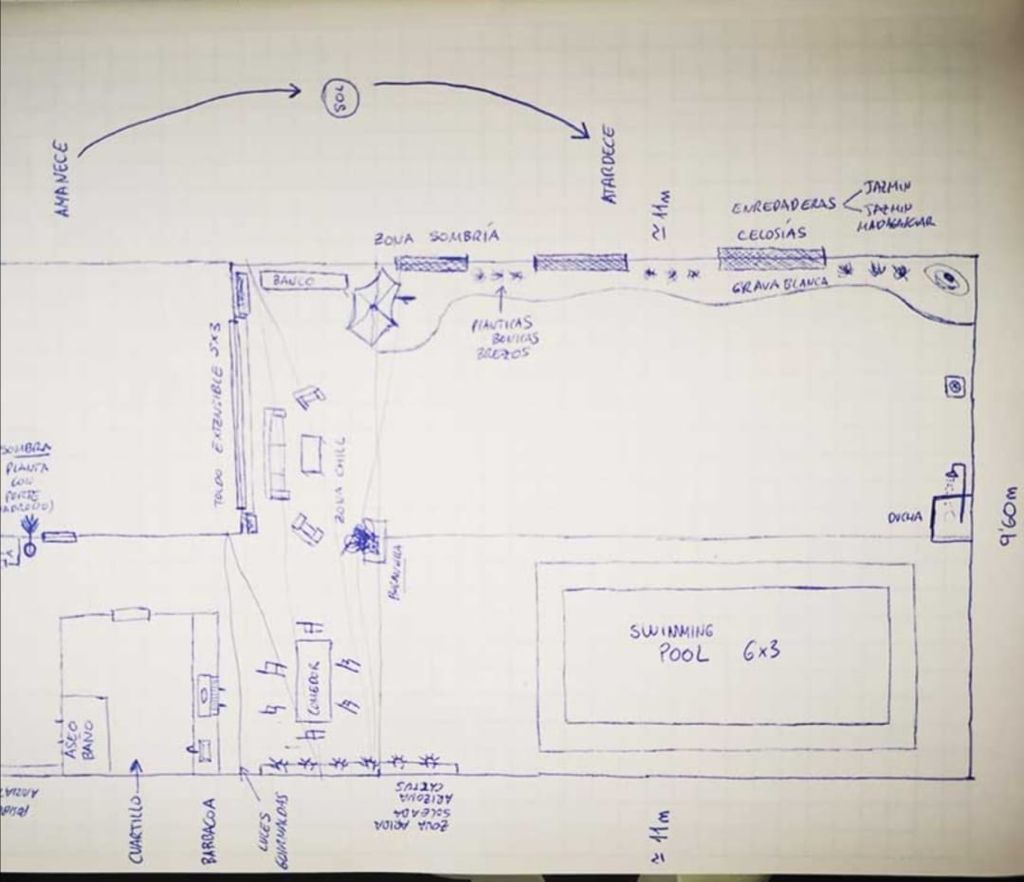 AMANECE
SOL
ATARDECE
≈ 11m
ENREDADERAS
JAZMIN
JAZMIN
MADAGASCAR
CELOSÍAS
ZONA SOMBRÍA
BANCO
GRAVA BLANCA
PLANTICAS
BONICAS
BREZOS
TOLDO EXTENSIBLE 5x3
ZONA CHILL
SOMBRA
PLANTA
CON
PORTE
DUCHA
9'60m
SWIMMING
POOL 6x3
COMEDOR
ASEO
BAÑO
CUARTILLO
BARBACOA
LUCES
GUIRNALDAS
ZONA ARIDA
SOLEADA
ARIZONA
CACTUS
≈ 11m